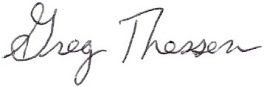 Greg Thessen